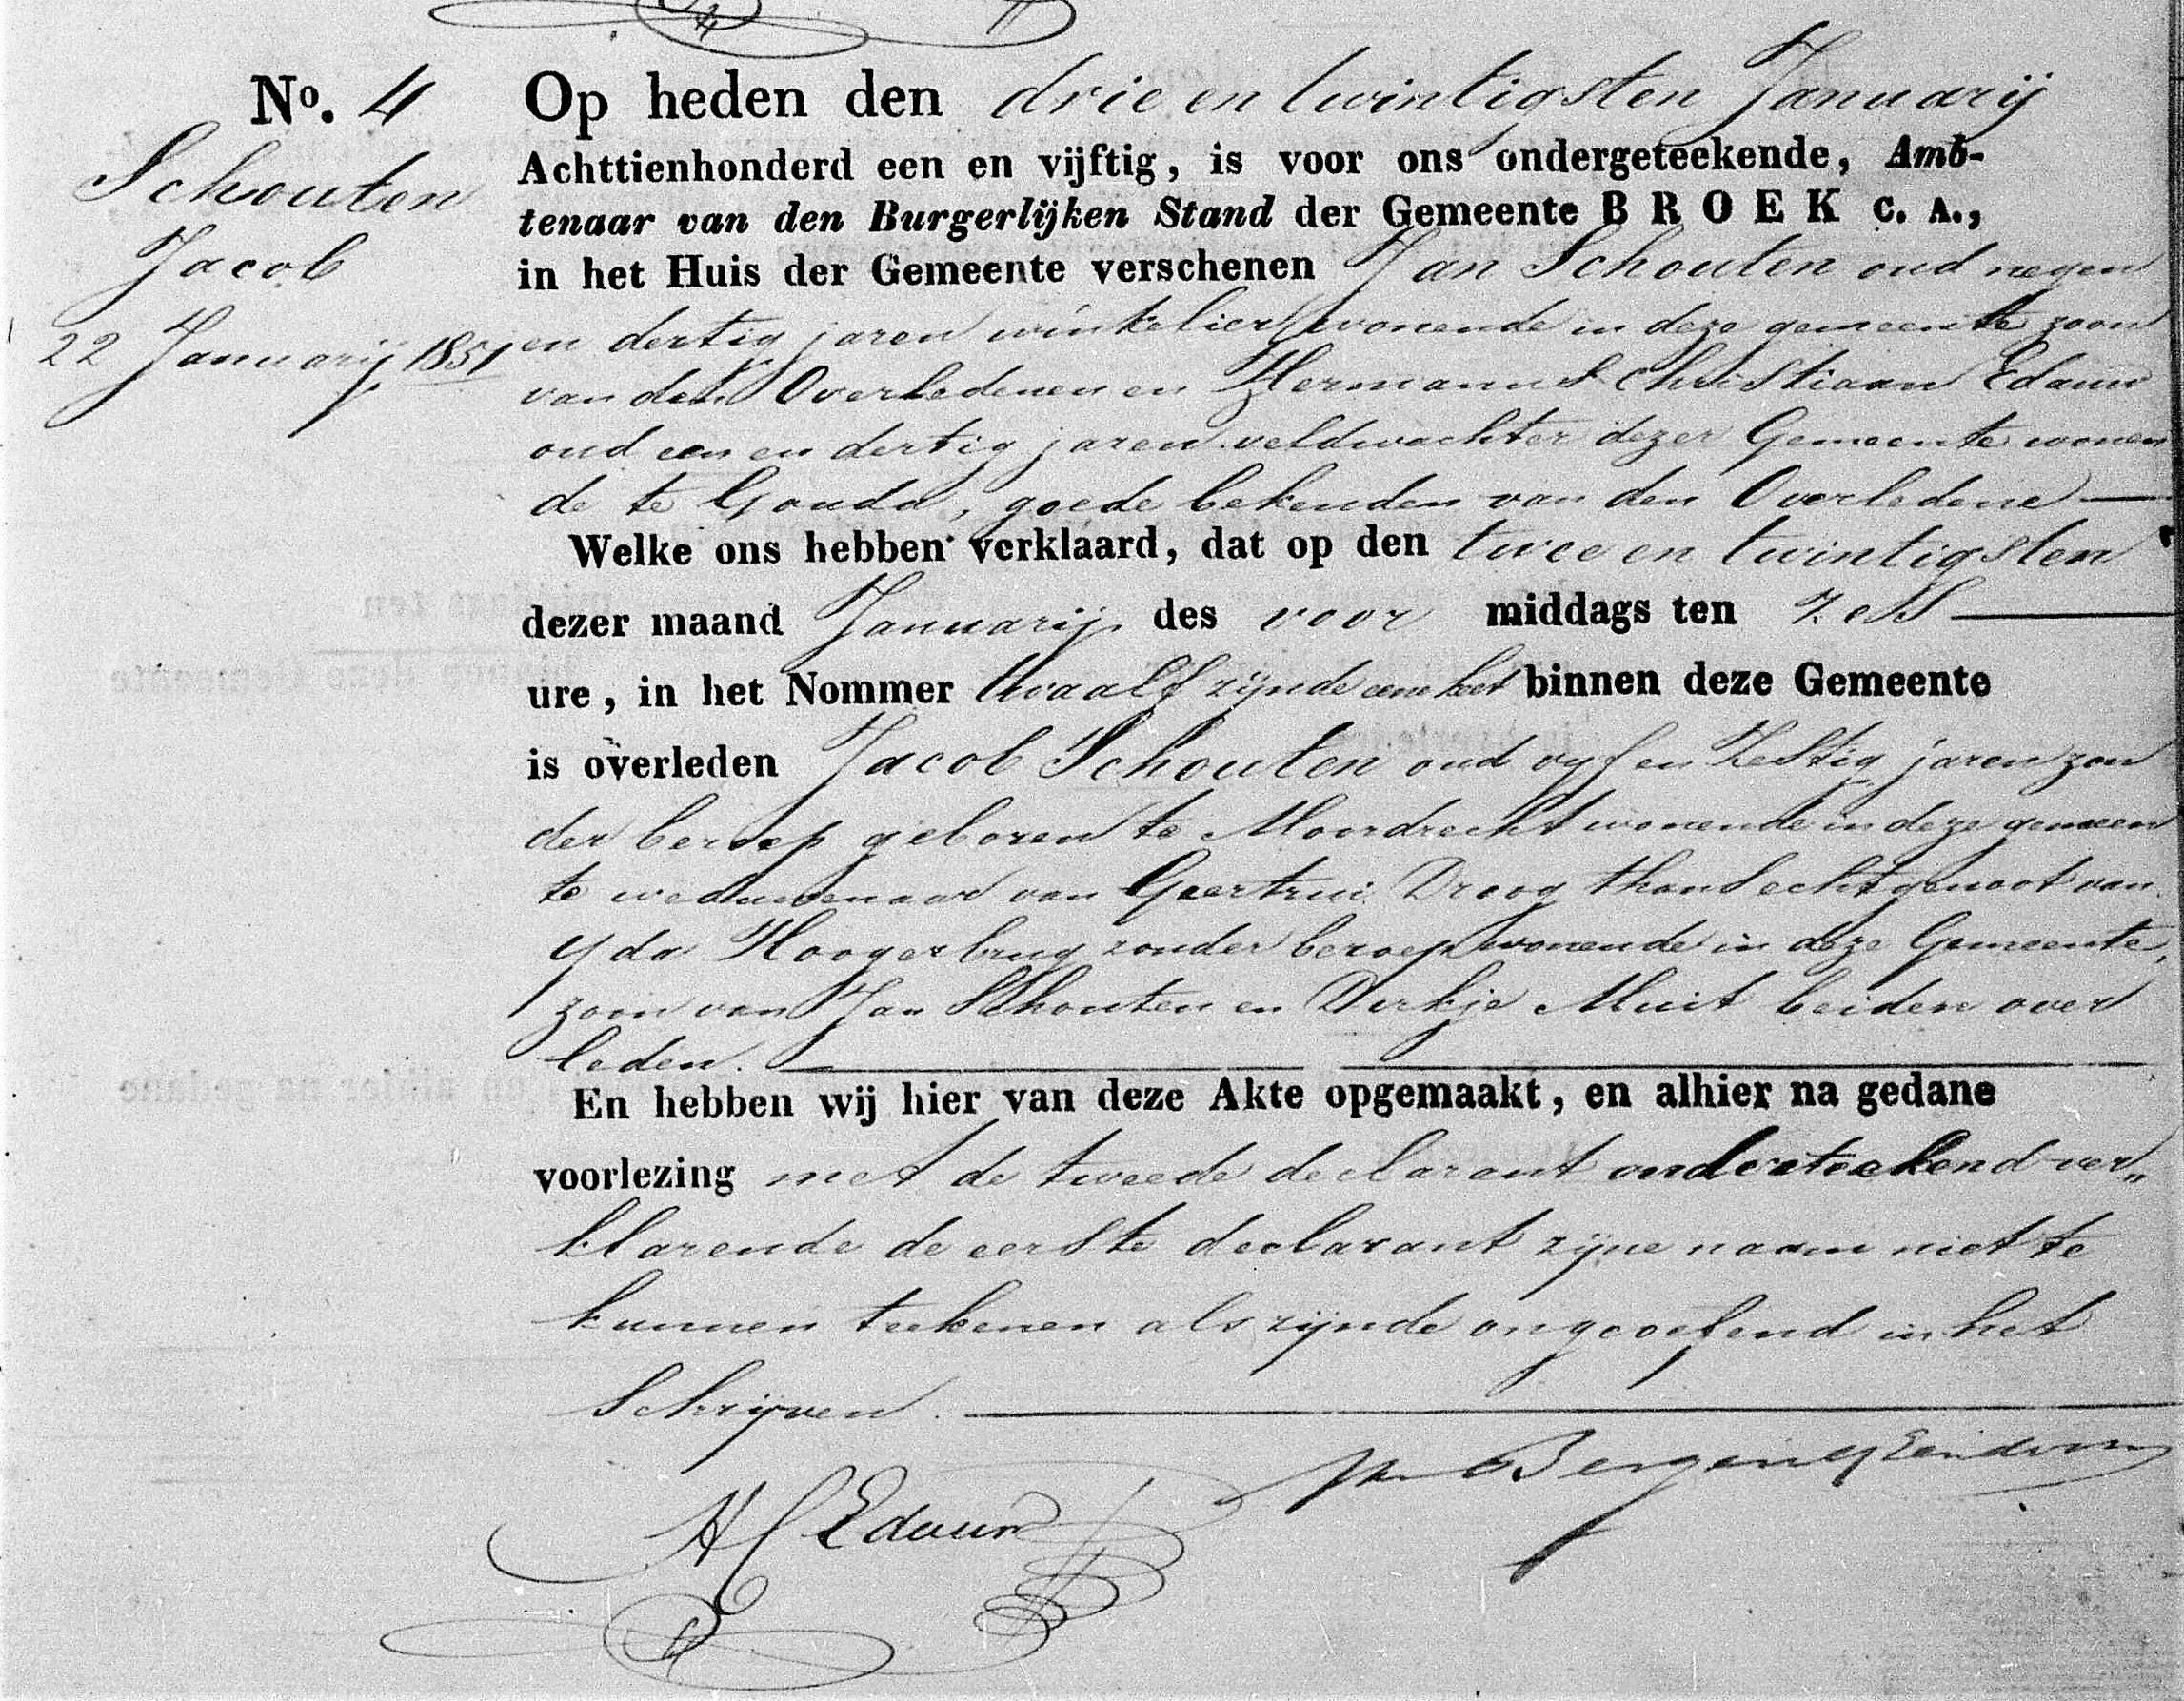 No. 4
Schouten
Jacob
22 Januarij 1851
Op heden den drie en twintigsten Januarij
Achttienhonderd een en vijftig, is voor ons ondergeteekende, Amb-
tenaar van den Burgerlijken Stand der Gemeente BROEK C. A.,
in het Huis der Gemeente verschenen Jan Schouten oud negen
en dertig jaren winkelier wonende in deze gemeente zoon
van den Overledenen en Hermanus Christiaan Edauw
oud een en dertig jaren veldwachter dezer Gemeente wonen
de te Gouda, goede bekenden van den Overledene
Welke ons hebben verklaard, dat op den twee en twintigsten
dezer maand Januarij des voor middags ten zes
ure, in het Nommer twaalf zijnde binnen deze Gemeente
is overleden Jacob Schouten oud vyf en Zestig jaren zon
der beroep geboren te Moordrecht wonende in deze gemeen
te weduwenaar van Geertrui Droog thans echtgenoot van
Yda Hoogerbrug zonder beroep wonende in deze Gemeente,
zoon van Jan Schouten en Dirkje Muit beiden over
leden.
En hebben wij hier van deze Akte opgemaakt, en alhier na gedane
voorlezing met de tweede declarant onderteekend ver„
klarende de eerste declarant zijne naam niet te
kunnen teekenen als zijnde ongeoefend in het
Schrijven.
H C Edauw